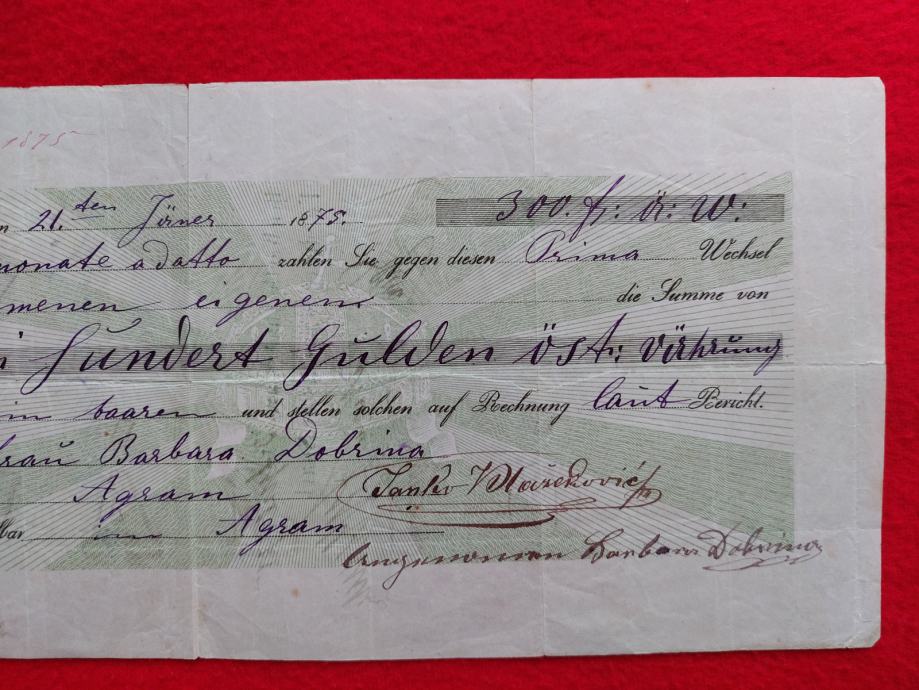 1875
21. ten Jäner 1875. 300. fl: ö: W:
monate a datto zahlen Sie gegen diesen Prima Wechsel
eigenem die Summe von
Hundert Gulden öst: Währung
in baaren und stellen solchen auf Rechnung laut Bericht.
Frau Barbara Dobrina
Agram
in Agram
Angenommen Barbara Dobrina